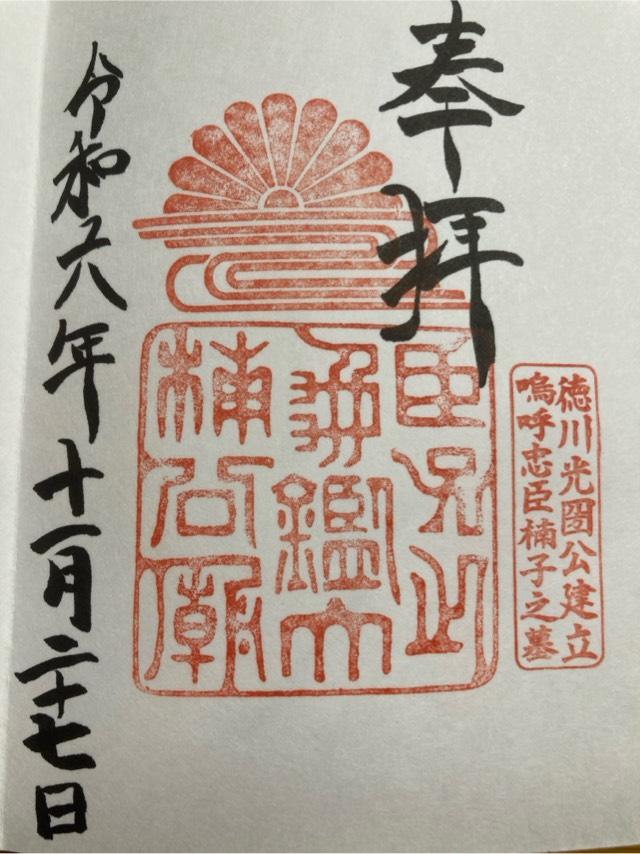 奉拝
徳川光圀公建立
嗚呼忠臣楠子之墓
臣子之
龜鑑大
楠公廟
令和六年十一月二十七日